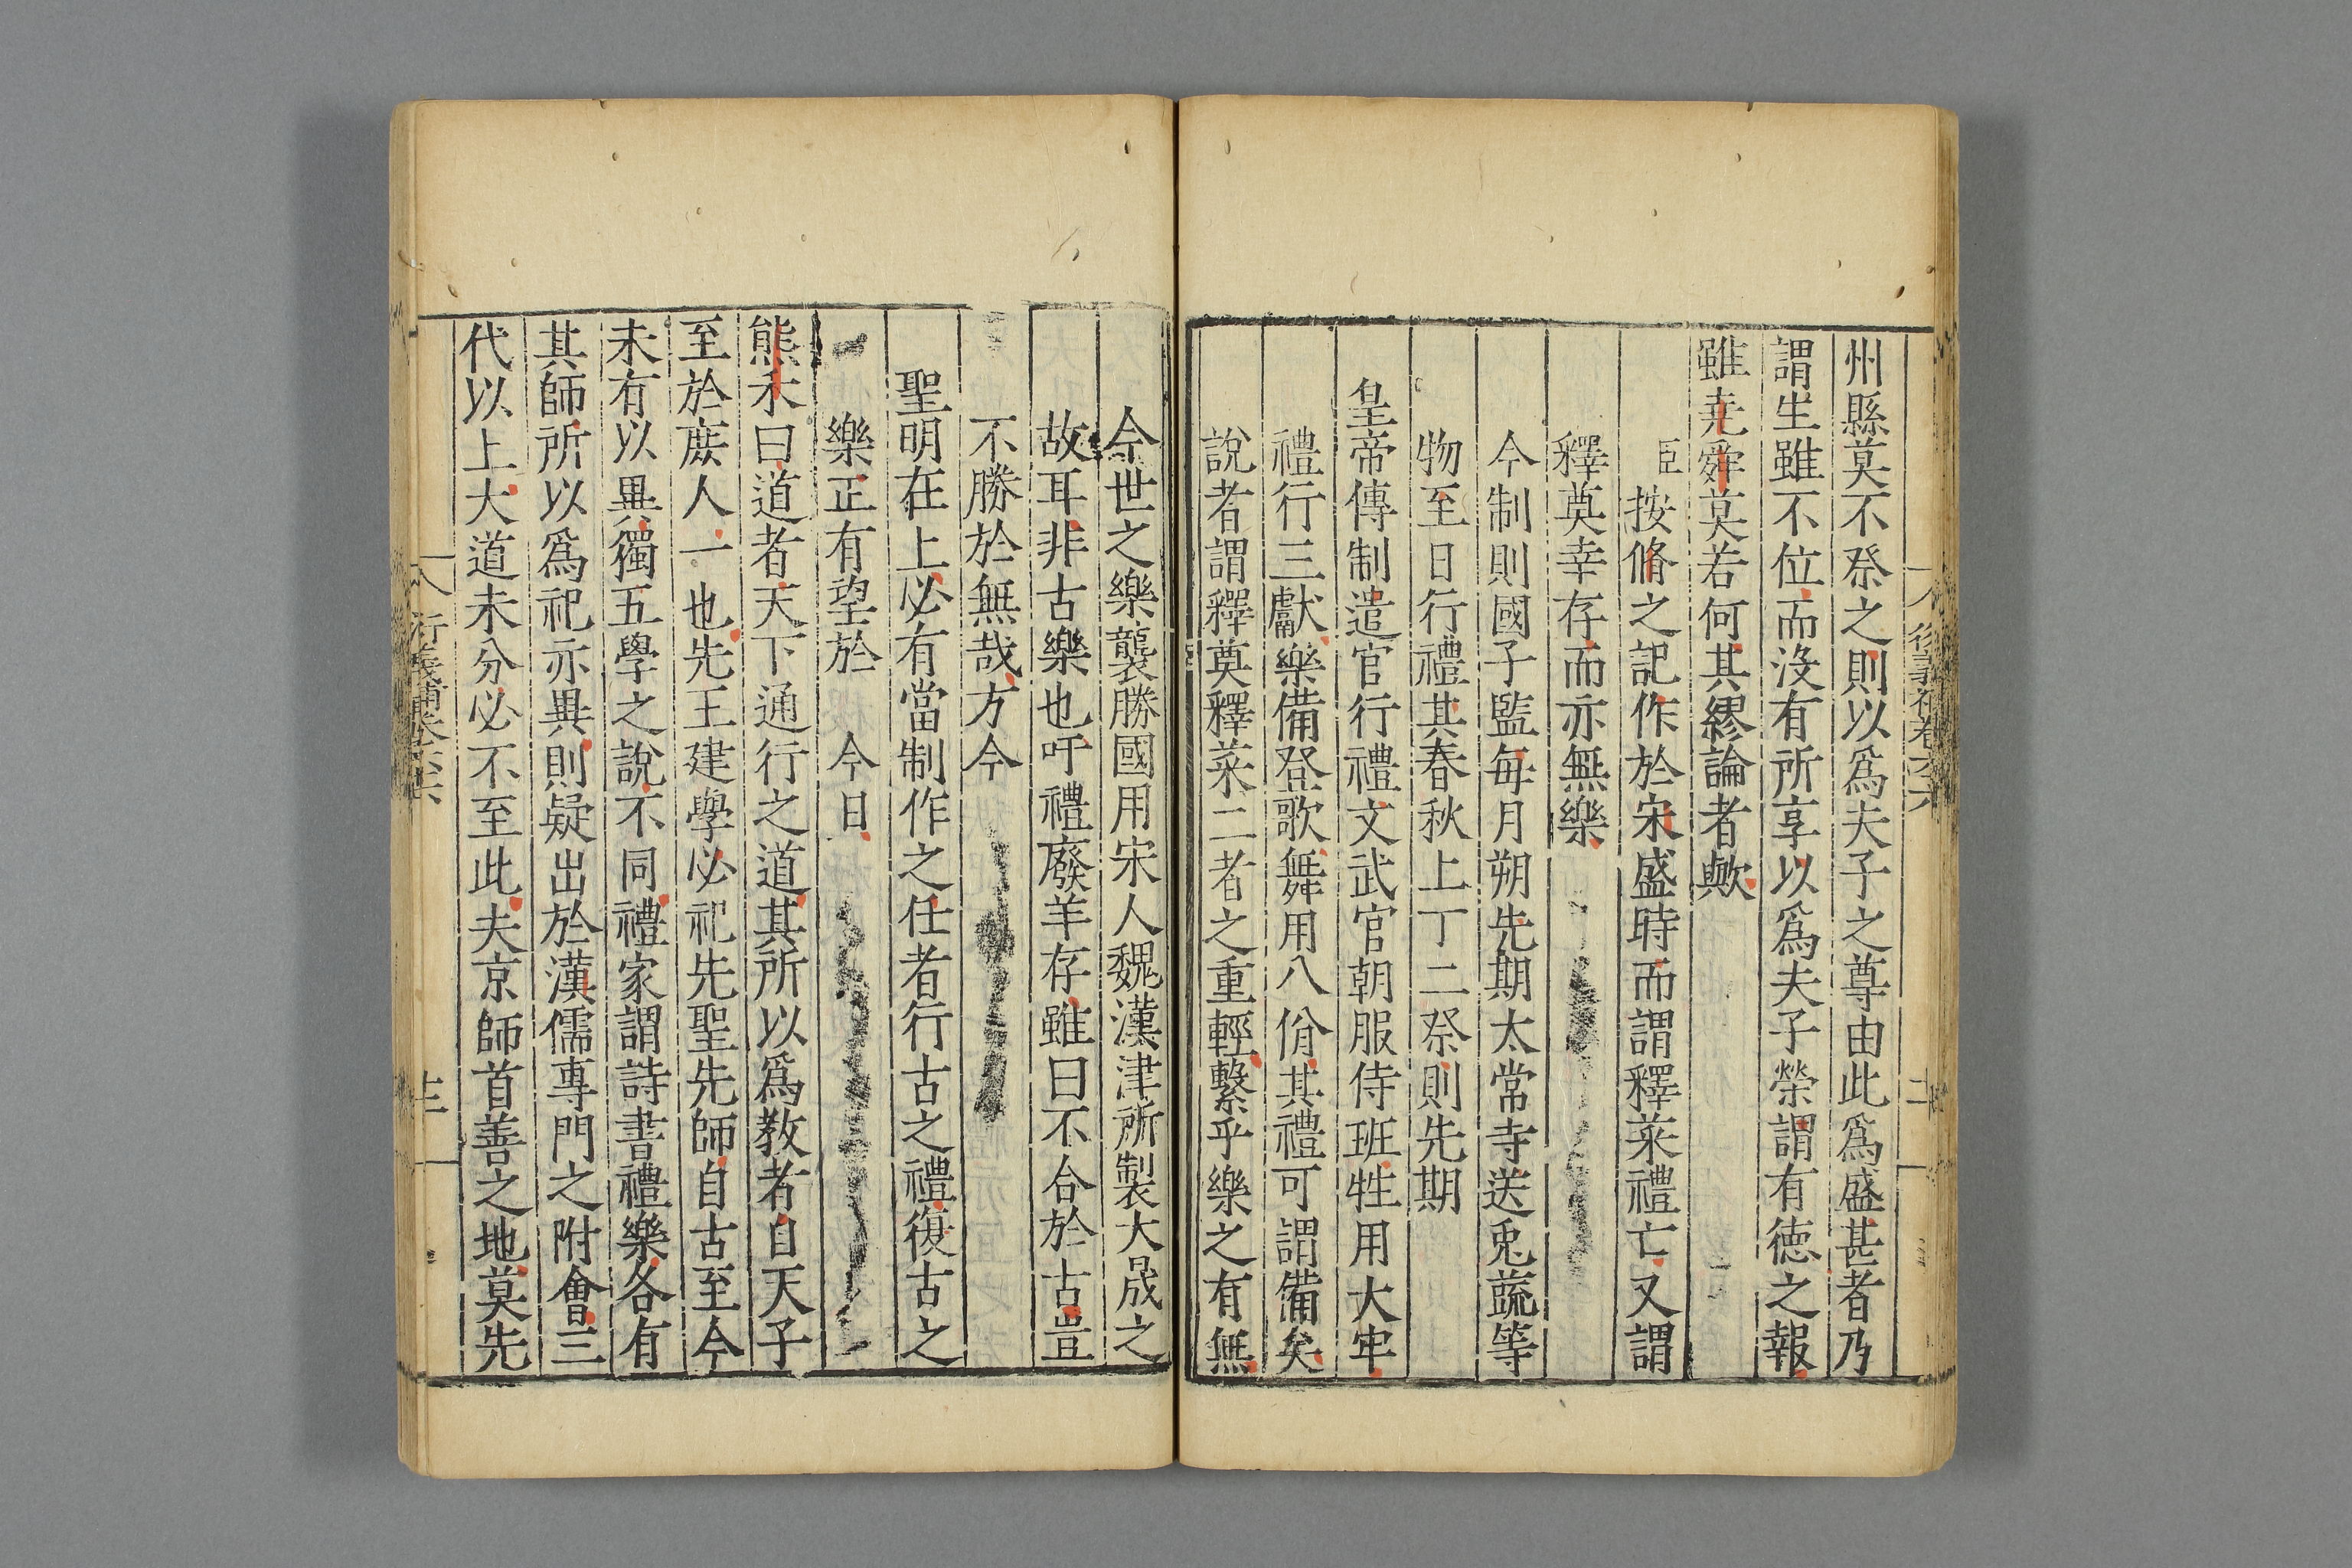 州縣莫不祭之則以爲夫子之尊由此爲盛甚者乃
謂生雖不位而沒有所享以爲夫子榮謂有德之報
雖堯舜莫若何其繆論者歟
臣按脩之記作於宋盛時而謂釋菜禮亡又謂
釋奠幸存而亦無樂
今制則國子監每月朔先期太常寺送兎蔬等
物至日行禮其春秋上丁二祭則先期
皇帝傳制遣官行禮文武官朝服侍班牲用大牢
禮行三獻樂備登歌舞用八佾其禮可謂備矣
說者謂釋奠釋菜二者之重輕繫乎樂之有無
今世之樂襲勝國用宋人魏漢津所製大晟之
故耳非古樂也吁禮廢羊存雖曰不合於古豈
不勝於無哉方今
聖明在上必有當制作之任者行古之禮復古之
樂正有望於 今日
熊禾曰道者天下通行之道其所以爲教者自天子
至於庶人一也先王建學必祀先聖先師自古至今
未有以異獨五學之說不同禮家謂詩書禮樂各有
其師所以爲祀亦異則疑出於漢儒專門之附會三
代以上大道未分必不至此夫京師首善之地莫先
衍義補卷六六